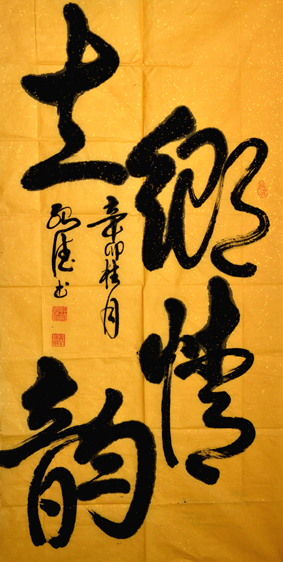 鄉情
土韵
辛卯桂月
书